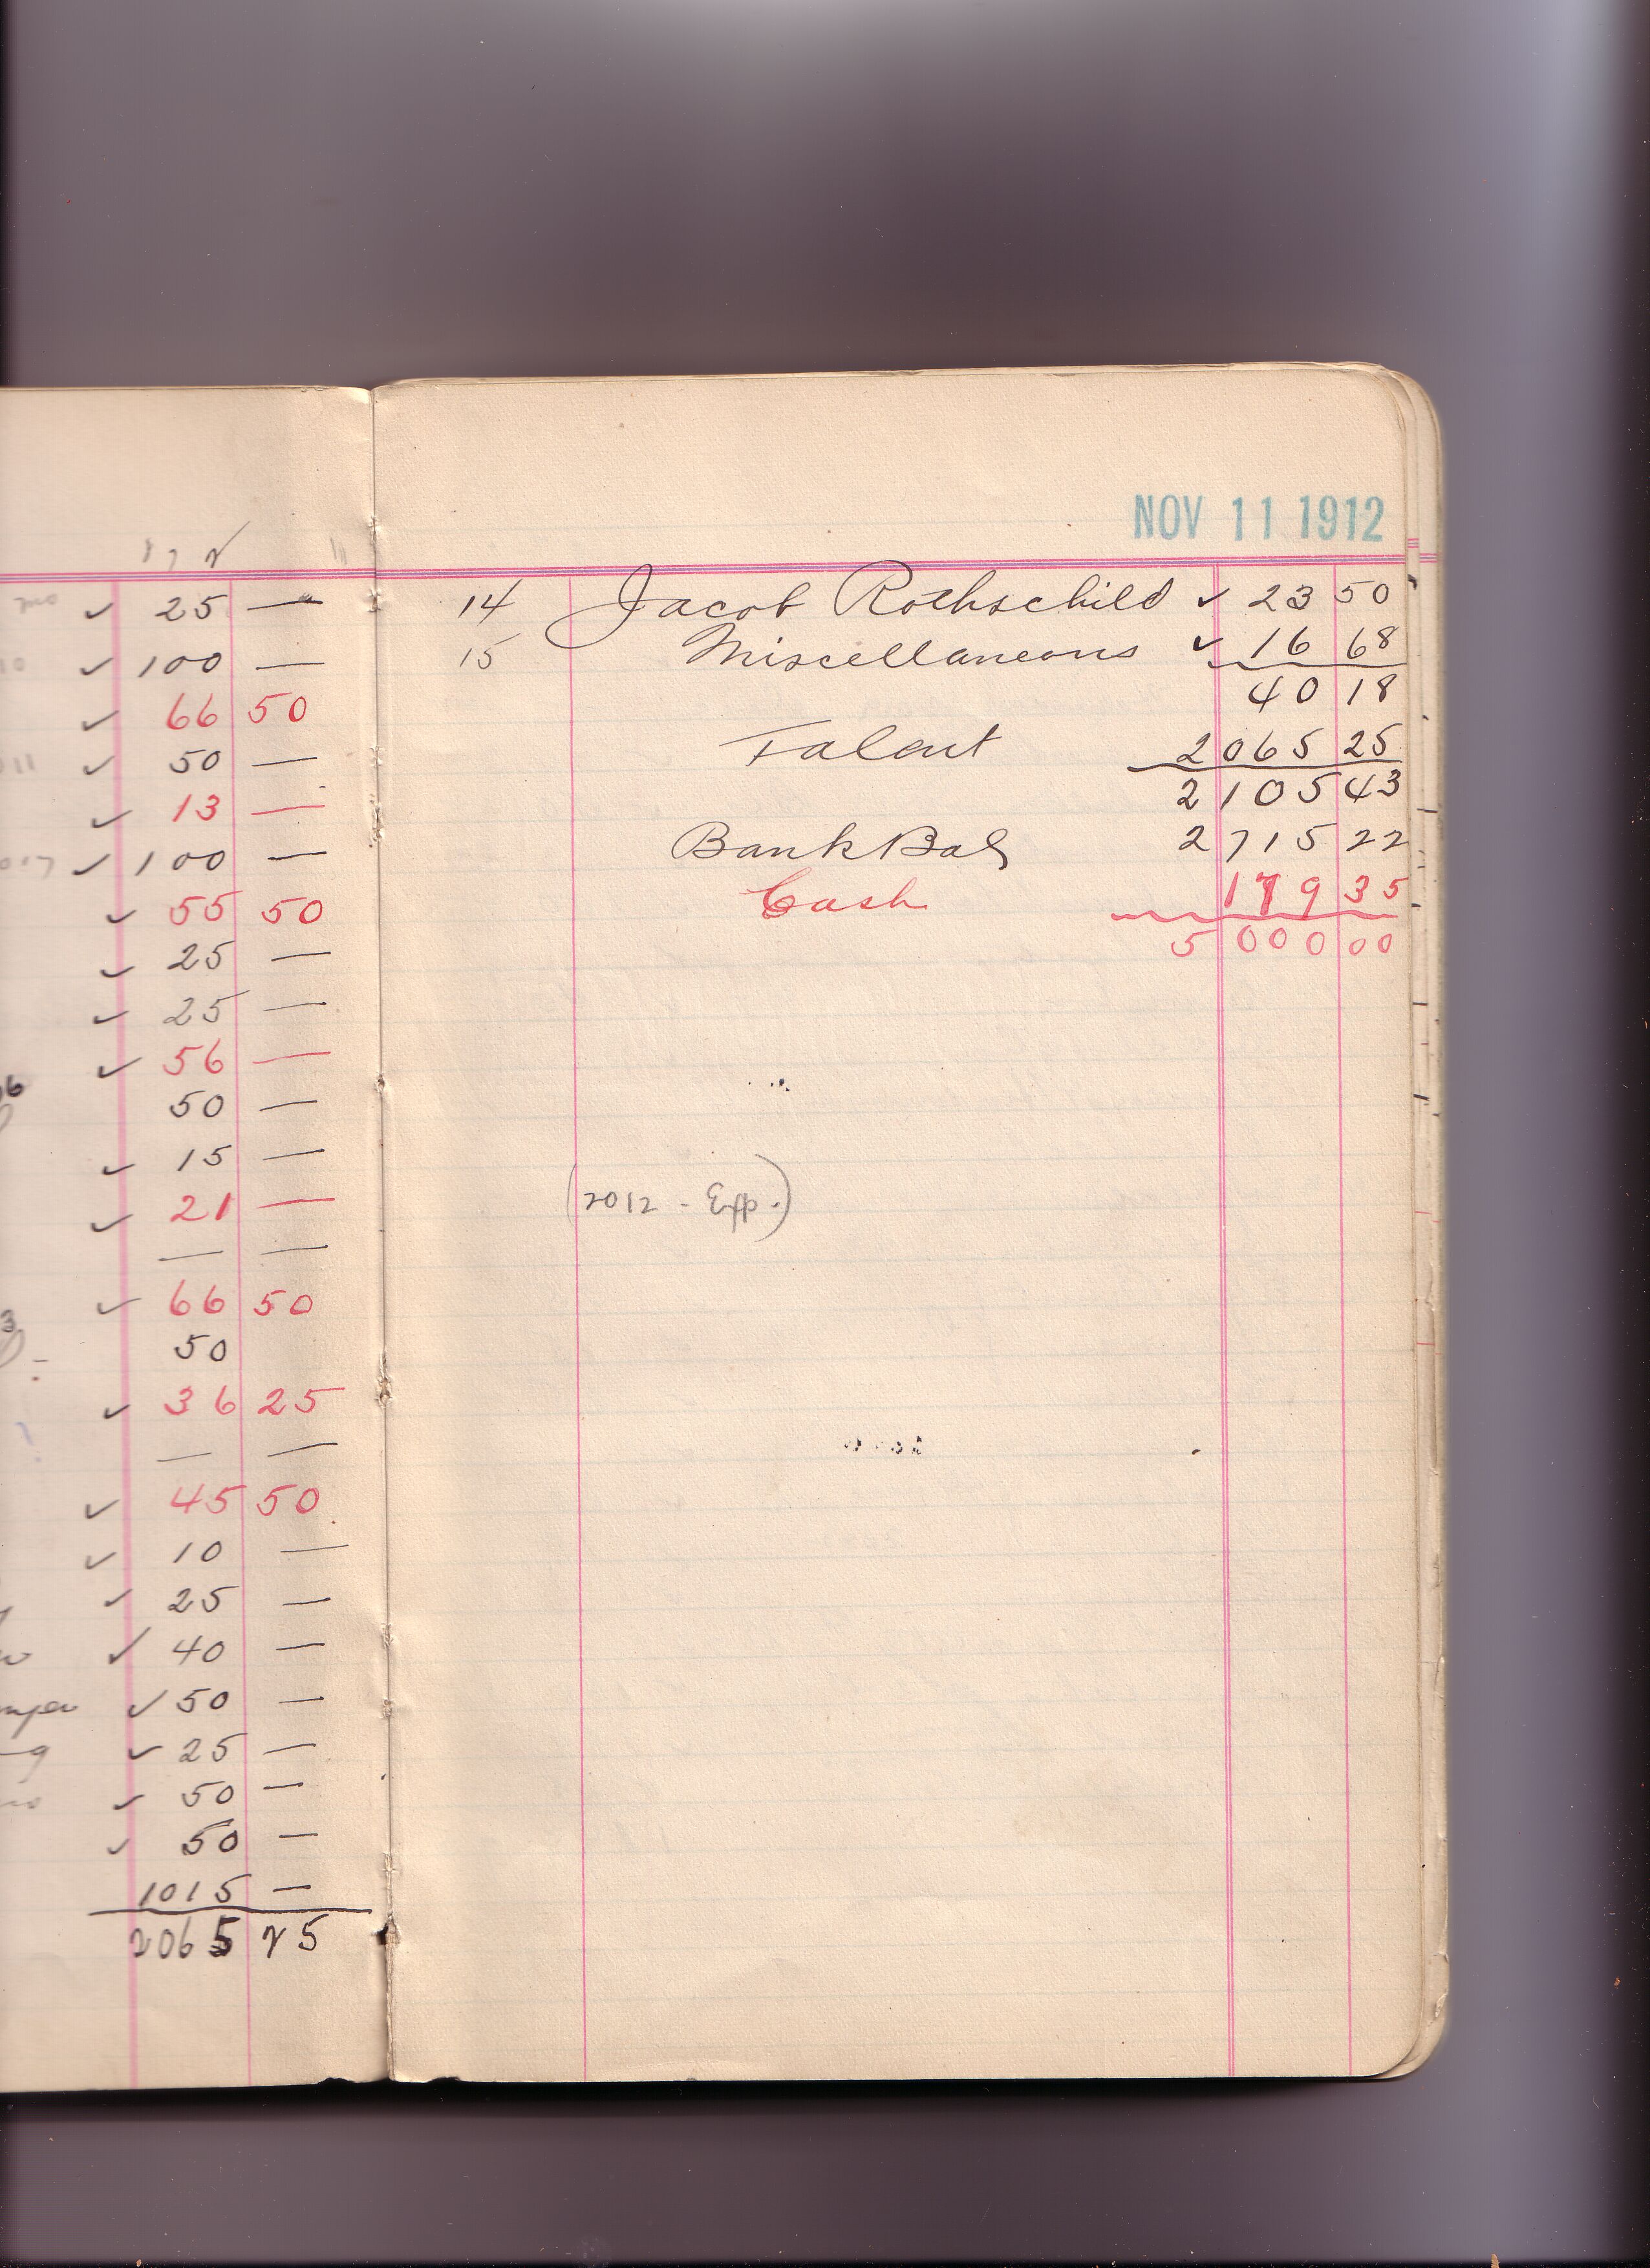 25 —
100 —
66 50
50 —
13 —
100 —
55 50
25 —
25 —
56 —
50 —
15 —
21 —
— —
66 50
50
36 25
— —
45 50
10 —
25 —
40 —
50 —
25 —
50 —
50 —
1015 —
2065 25
NOV 11 1912
14 Jacob Rothschild ✓ 23 50
15 Miscellaneous ✓ 16 68
40 18
Talent 2065 25
2105 43
Bank Bal 2715 22
Cash 179 35
5000 00
(2012 - Eff.)